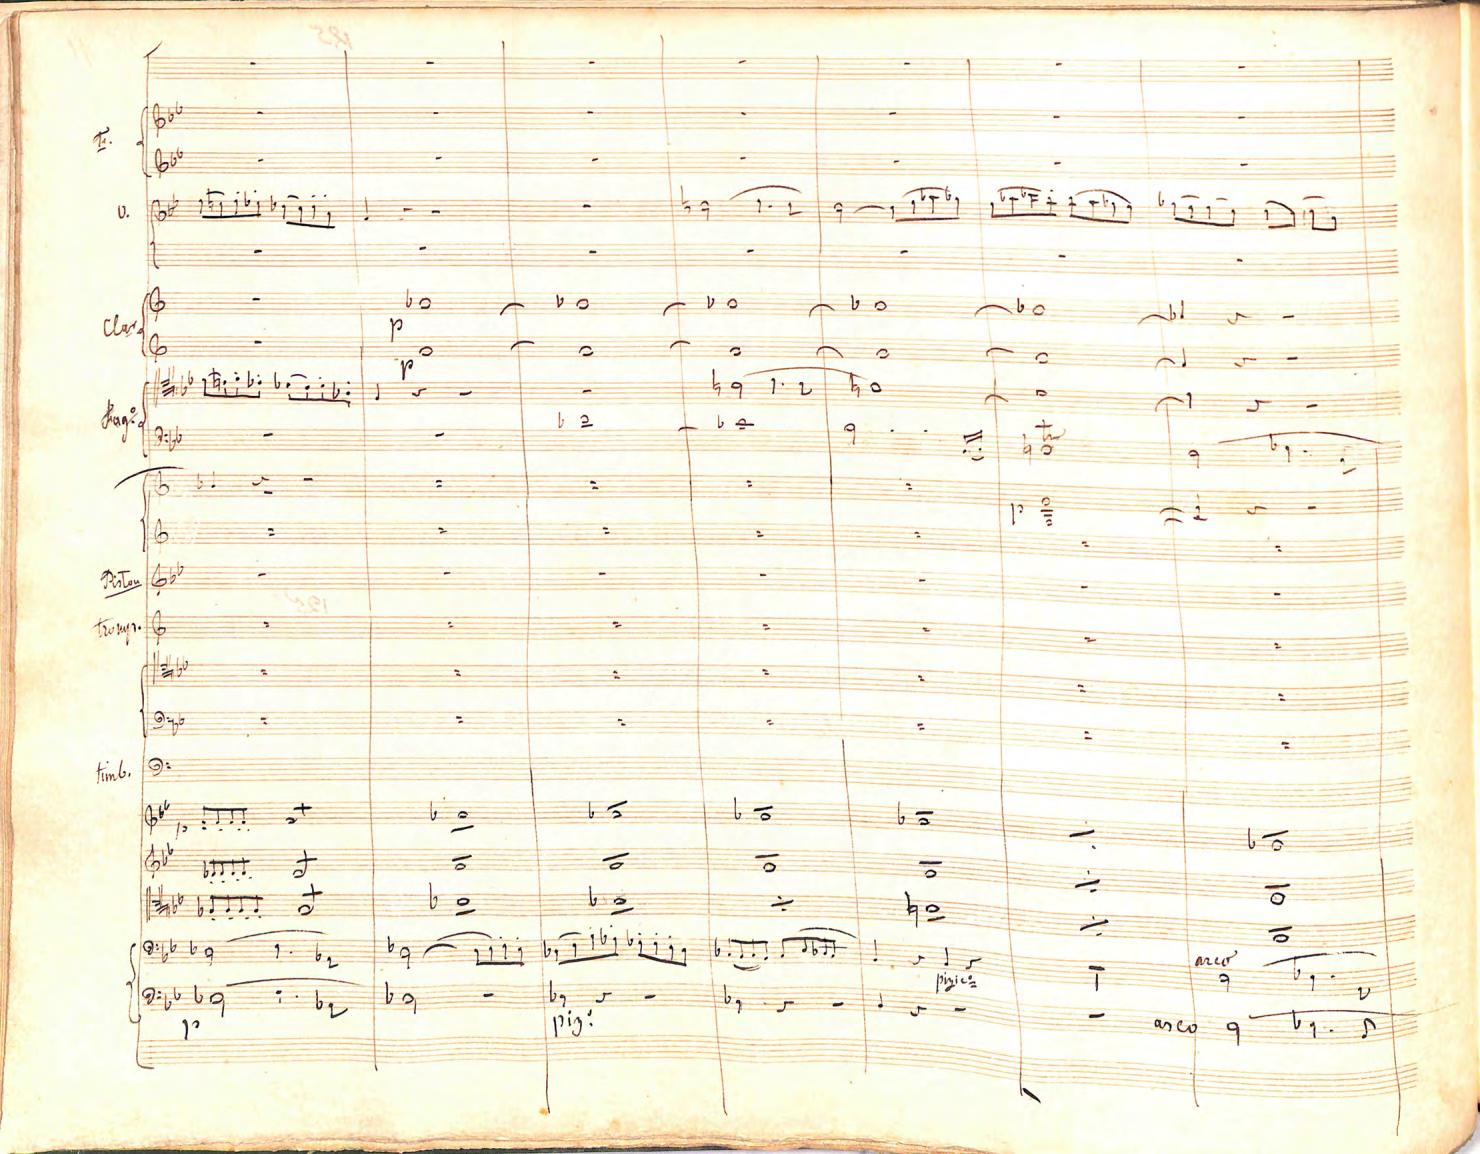 Fl.
O.
p
Clar.
p
Fag:
p
Piston
Tromp.
Timb.
p
arco
pizic:
p
piz:
arco